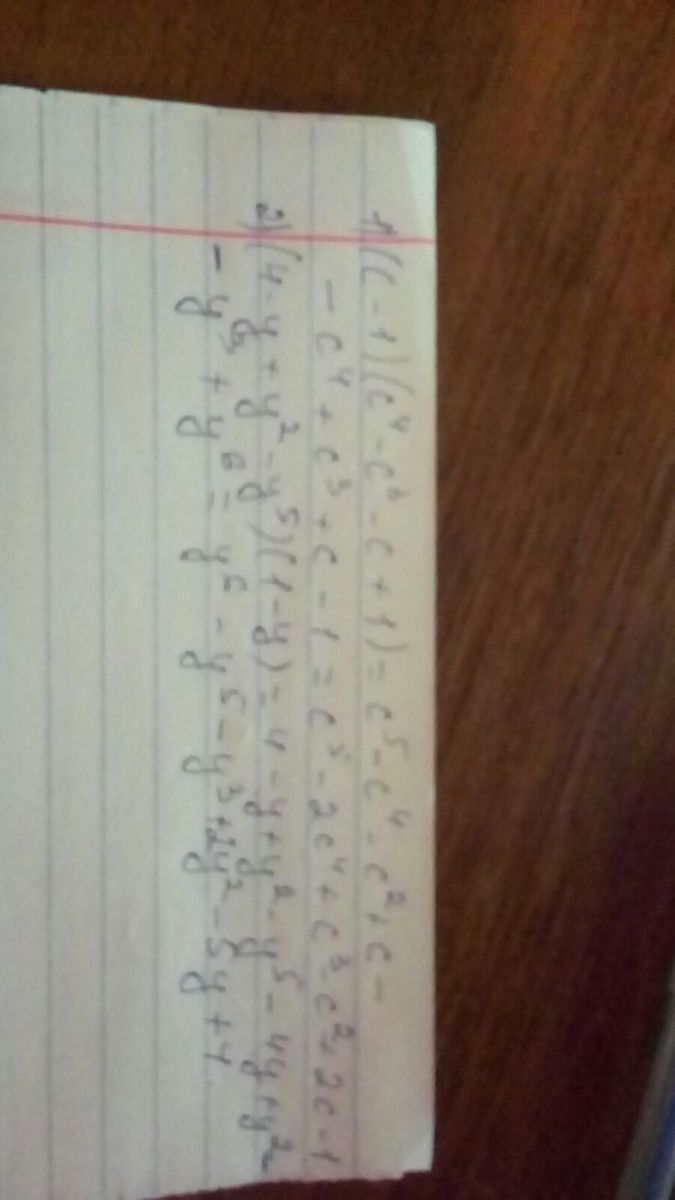 1) (c-1)(c⁴-c³-c+1)=c⁵-c⁴-c²+c-
-c⁴+c³+c-1=c⁵-2c⁴+c³-c²+2c-1
2) (4-y+y²-y⁵)(1-y)=4-y+y²-y⁵-4y+y²-
-y³+y⁶=y⁶-y⁵-y³+2y²-5y+4